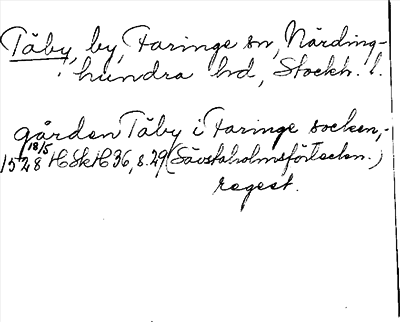 Täby, by, Faringe sn, Närding-
hundra hd, Stockh. l.
gården Täby i Faringe socken,-
1528 18/5 HSkH 36, s. 29 (Sävstaholmsförteckn.)
regest.